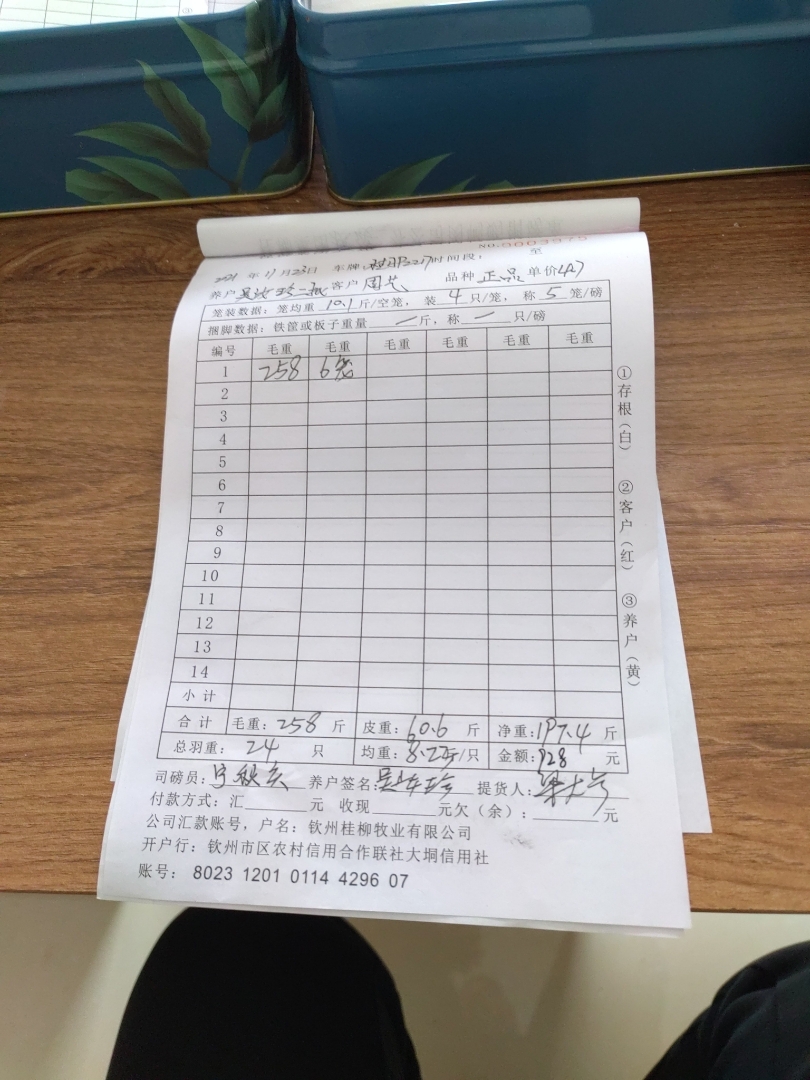 No.0003975
2021 年 11 月 23 日 车牌: 时间段: 至
养户 客户 周总 品种 正品 单价 4.7
笼装数据: 笼均重 10.1 斤/空笼, 装 4 只/笼, 称 5 笼/磅
捆脚数据: 铁筐或板子重量 — 斤, 称 — 只/磅
编号 毛重 毛重 毛重 毛重 毛重 毛重
1 258 6笼
2
3
4
5
6
7
8
9
10
11
12
13
14
小计
合计 毛重: 258 斤 皮重: 60.6 斤 净重: 197.4 斤
总羽重: 24 只 均重: 8.22斤/只 金额: 928 元
司磅员: 养户签名: 提货人:
付款方式: 汇 元 收现 元欠(余): 元
公司汇款账号, 户名: 钦州桂柳牧业有限公司
开户行: 钦州市区农村信用合作联社大垌信用社
账号: 8023 1201 0114 4296 07
①存根(白)
②客户(红)
③养户(黄)